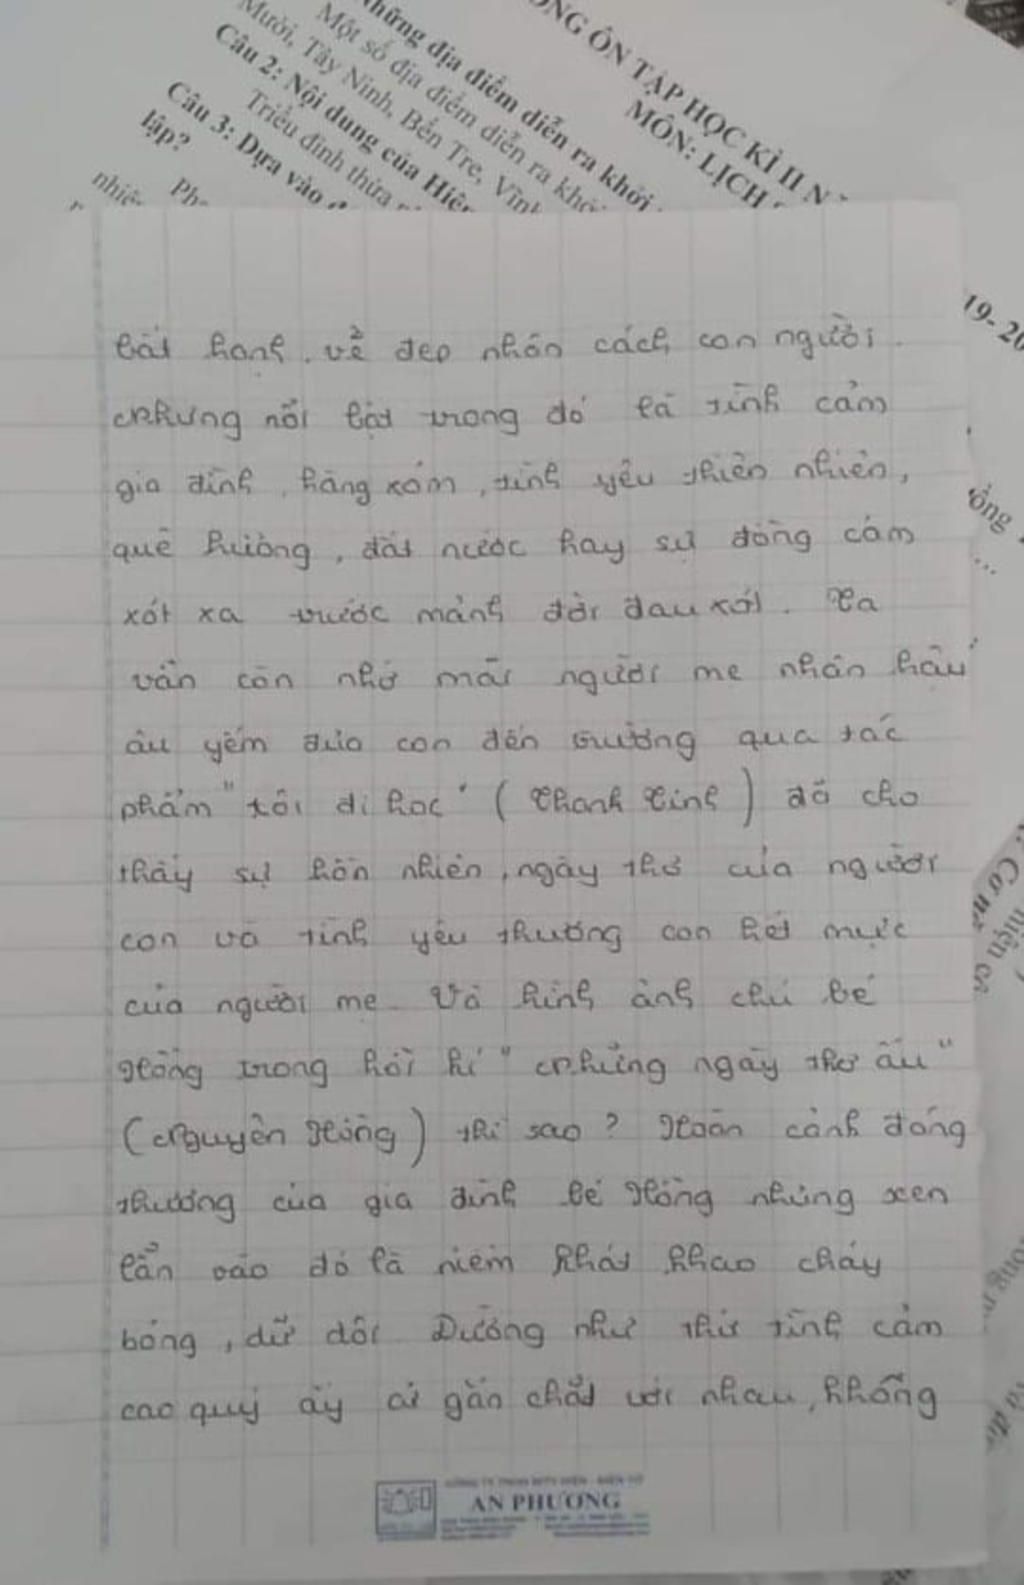 ÔNG ÔN TẬP HỌC KÌ II N
MÔN: LỊCH
những địa điểm diễn ra khởi
Một số địa điểm diễn ra khởi
Mười, Tây Ninh, Bến Tre, Vĩnh
Câu 2: Nội dung của Hiệp
Triều đình thừa
Câu 3: Dựa vào
lập?
nhiệ
19-20
bất hạnh. vẻ đẹp nhân cách con người.
Nhưng nổi bật trong đó là tình cảm
gia đình, hàng xóm, tình yêu thiên nhiên,
quê hương, đất nước hay sự đồng cảm
xót xa trước mảnh đời đau xót. Ta
vẫn còn nhớ mãi người mẹ nhân hậu
âu yếm đưa con đến trường qua tác
phẩm "tôi đi học" (Thanh Tịnh) đã cho
thấy sự hồn nhiên, ngây thơ của người
con và tình yêu thương con hết mực
của người mẹ. Và hình ảnh chú bé
Hồng trong hồi kí "Những ngày thơ ấu"
(Nguyên Hồng) thì sao? Hoàn cảnh đáng
thương của gia đình bé Hồng nhưng xen
lẫn vào đó là niềm khát khao cháy
bỏng, dữ dội. Dường như thứ tình cảm
cao quý ấy cứ gắn chặt với nhau, không
AN PHƯƠNG